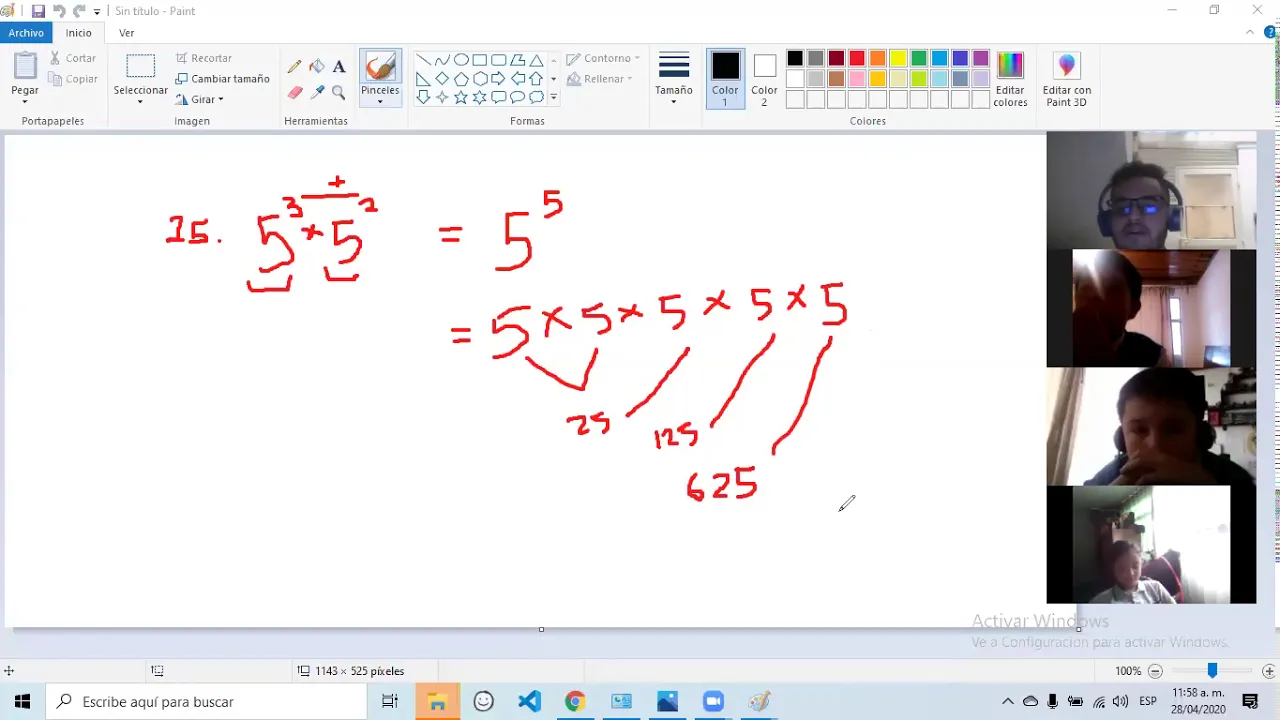 Sin título - Paint
Archivo Inicio Ver
Pegar
Cortar
Copiar
Portapapeles
Seleccionar
Recortar
Cambiar tamaño
Girar
Imagen
Herramientas
Pinceles
Contorno
Rellenar
Formas
Tamaño
Color 1
Color 2
Editar colores
Editar con Paint 3D
Colores
+
15. 5³ × 5² = 5⁵
= 5 × 5 × 5 × 5 × 5
25
125
625
Activar Windows
Ve a Configuración para activar Windows.
1143 × 525 píxeles
100%
Escribe aquí para buscar
ESP
11:58 a. m.
28/04/2020